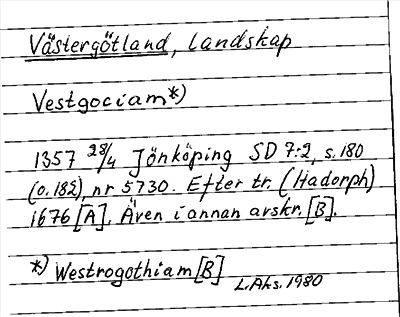 Västergötland, landskap
Vestgociam*)
1357 28/4 Jönköping SD 7:2, s. 180
(o. 182), nr 5730. Efter tr. (Hadorph)
1676 [A]. Även i annan avskr. [B].
*) Westrogothiam [B]
L. Ahs. 1980